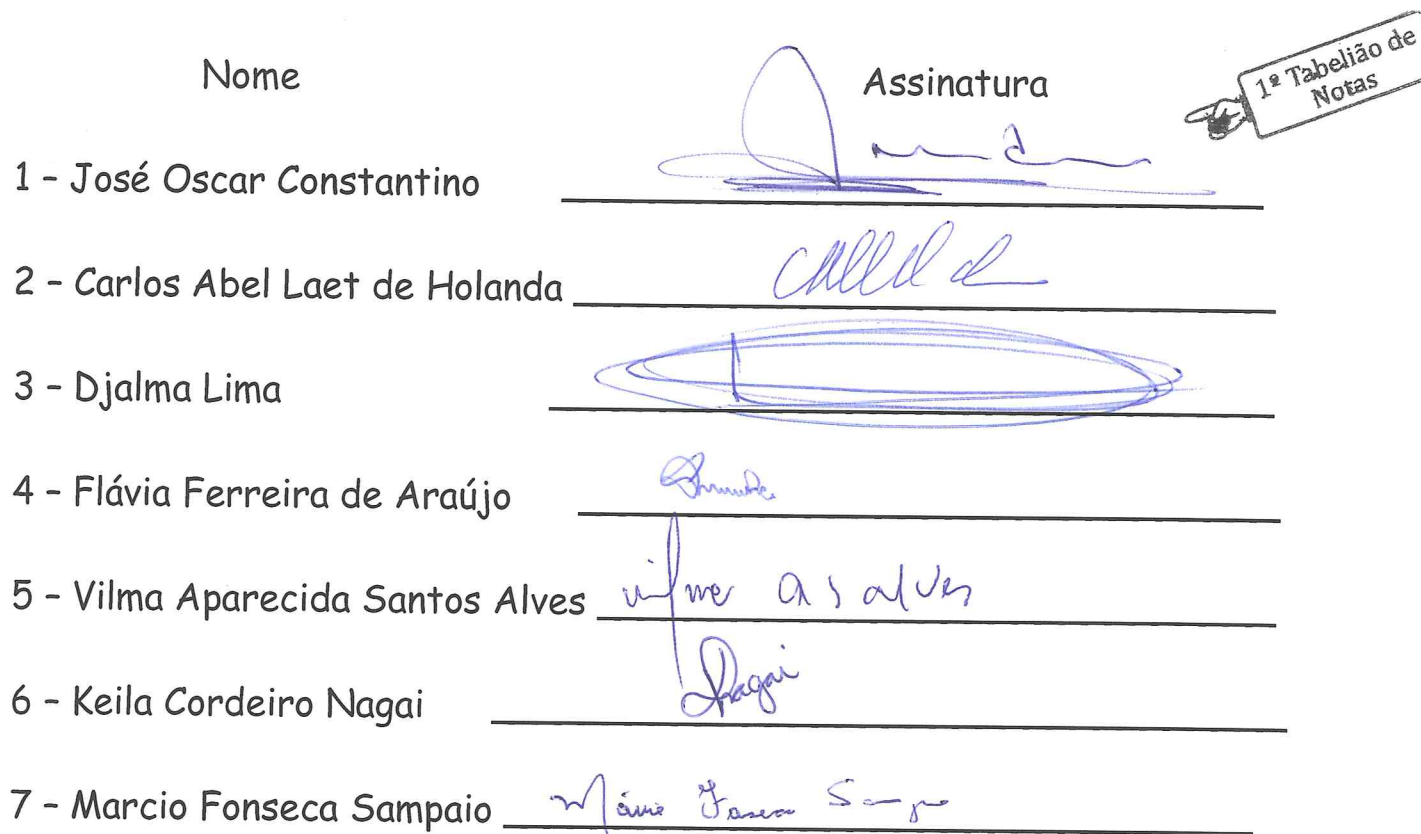 Nome Assinatura
1º Tabelião de
Notas
1 - José Oscar Constantino
2 - Carlos Abel Laet de Holanda
3 - Djalma Lima
4 - Flávia Ferreira de Araújo
5 - Vilma Aparecida Santos Alves vilma a s alves
6 - Keila Cordeiro Nagai Nagai
7 - Marcio Fonseca Sampaio